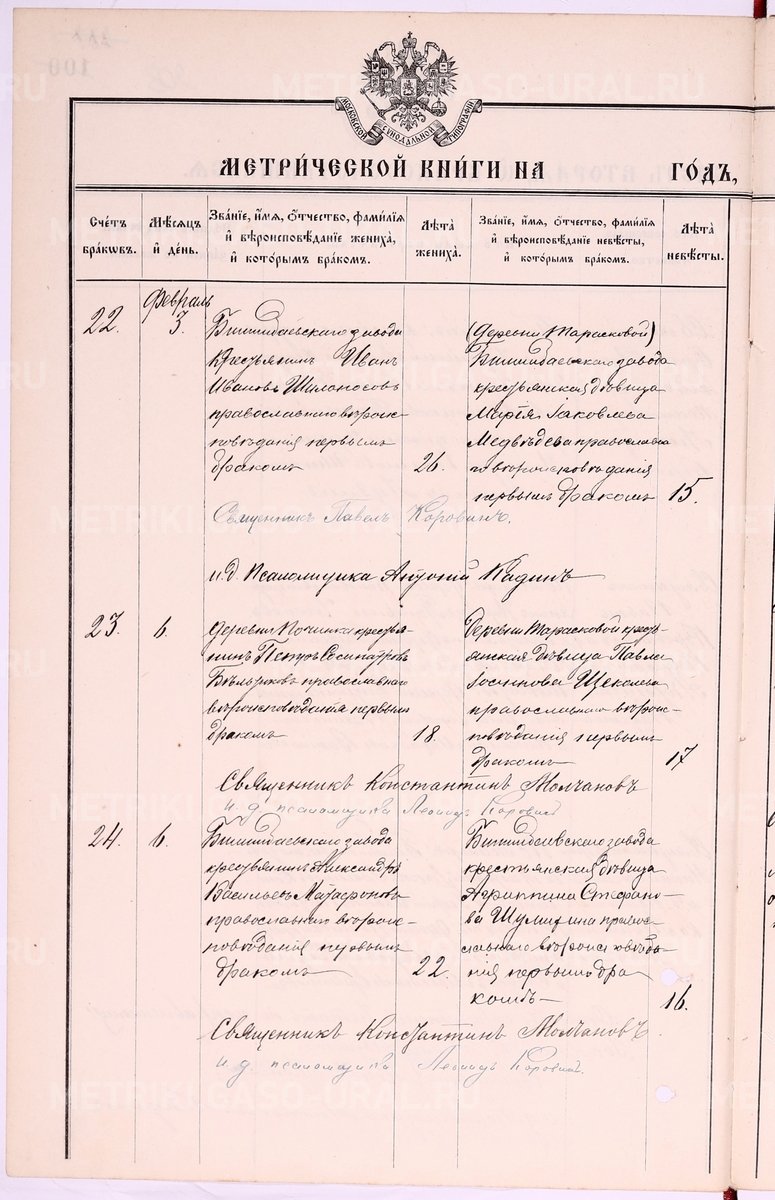 МОСКОВСКОЙ СѴНОДАЛЬНОЙ ТИПОГРАФІИ
МЕТРИ́ЧЕСКОЙ КНИ́ГИ НА ГО́ДЪ,
Сче́тъ бра́кωвъ.
Мѣ́сяцъ и҆ де́нь.
Зва́нїе, и҆́мя, ѻ҆́тчество, фами́лїя и҆ вѣроисповѣ́данїе жениха̀, и҆ кото́рымъ бра́комъ.
Лѣ́та жениха̀.
Зва́нїе, и҆́мя, ѻ҆́тчество, фами́лїя и҆ вѣроисповѣ́данїе невѣ́сты, и҆ кото́рымъ бра́комъ.
Лѣ́та невѣ́сты.
Февраль
22.
3.
Билимбаевскаго завода
крестьянинъ Иванъ
Ивановъ Шилоносовъ
православнаго вѣроис-
повѣданія первымъ
бракомъ
26.
(Деревни Тарасковой)
Билимбаевскаго завода
крестьянская дѣвица
Марія Іаковлева
Медвѣдева православна-
го вѣроисповѣданія
первымъ бракомъ
15.
Священникъ Павелъ Коровинъ.
и.д. псаломщика Антоній Кадинъ
23.
6.
деревни Починка крестья-
нинъ Петръ Сосипатровъ
православнаго
вѣроисповѣданія первымъ
бракомъ
18.
деревни Тарасковой кресть-
янская дѣвица Павла
Іосифова Щекалева
православнаго вѣроис-
повѣданія первымъ
бракомъ
17
Священникъ Константинъ Молчановъ
и. д. псаломщика Леонидъ Коровинъ
24.
6.
Билимбаевскаго завода
крестьянинъ Александръ
Васильевъ Матафоновъ
православнаго вѣроис-
повѣданія первымъ
бракомъ
22.
Билимбаевскаго завода
крестьянская дѣвица
Агриппина Стефано-
ва Шулятина правос-
лавнаго вѣроисповѣда-
нія первымъ бра
комъ
16.
Священникъ Константинъ Молчановъ
и. д. псаломщика Леонидъ Коровинъ.
METRIKI.GASO-URAL.RU